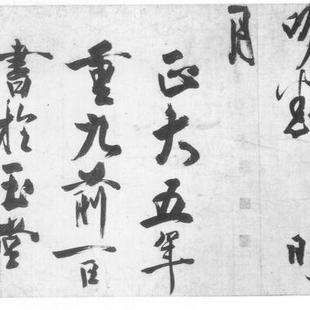 月
正大五年
重九前一日
書於玉堂